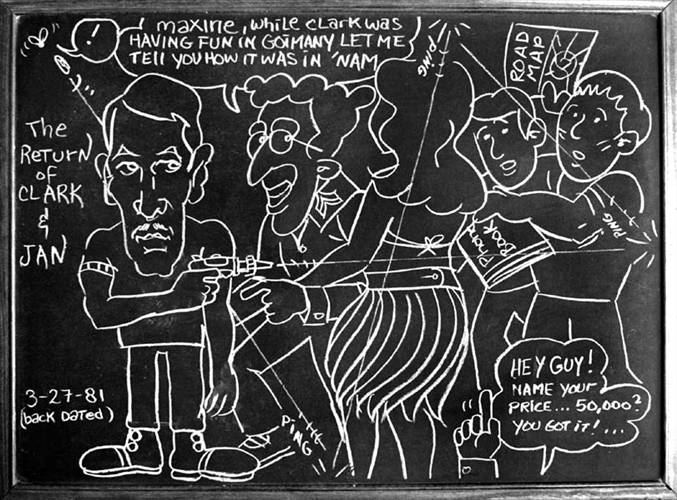 !
maxine, while clark was
HAVING FUN IN GOIMANY LET ME
TELL YOU HOW IT WAS IN 'NAM
PING
ROAD
MAP
The
RETURN
OF
CLARK
&
JAN
PING
PHONE
BOOK
3-27-81
(back DATED)
PING
HEY GUY!
NAME YOUR
PRICE... 50,000?
YOU GOT IT!...